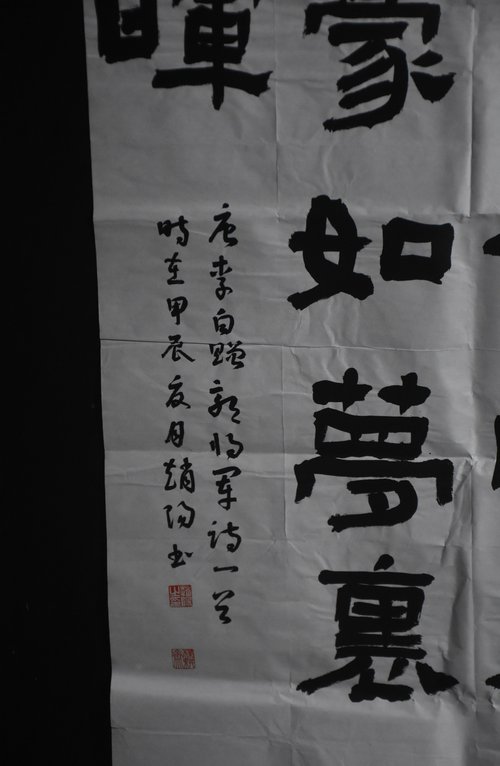 豪如夢裏
暉
唐李白贈郭將軍詩一首
時在甲辰夏月趙陽書